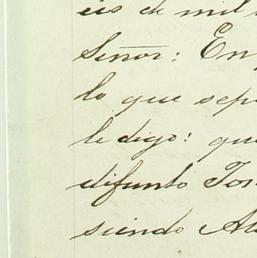 de mil
Señor: En
lo que sepa
le digo: que
difunto
siendo